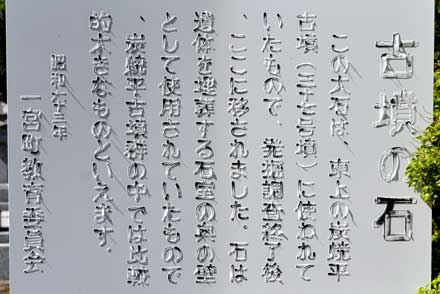 古墳の石
この大石は、東上の炭焼平
古墳(三十三号墳)に使われて
いたもので、発掘調査終了後
、ここに移されました。石は
遺体を埋葬する石室の奥の壁
として使用されていたもので
、炭焼平古墳群の中では比較
的大きなものといえます。
昭和六十三年
一宮町教育委員会